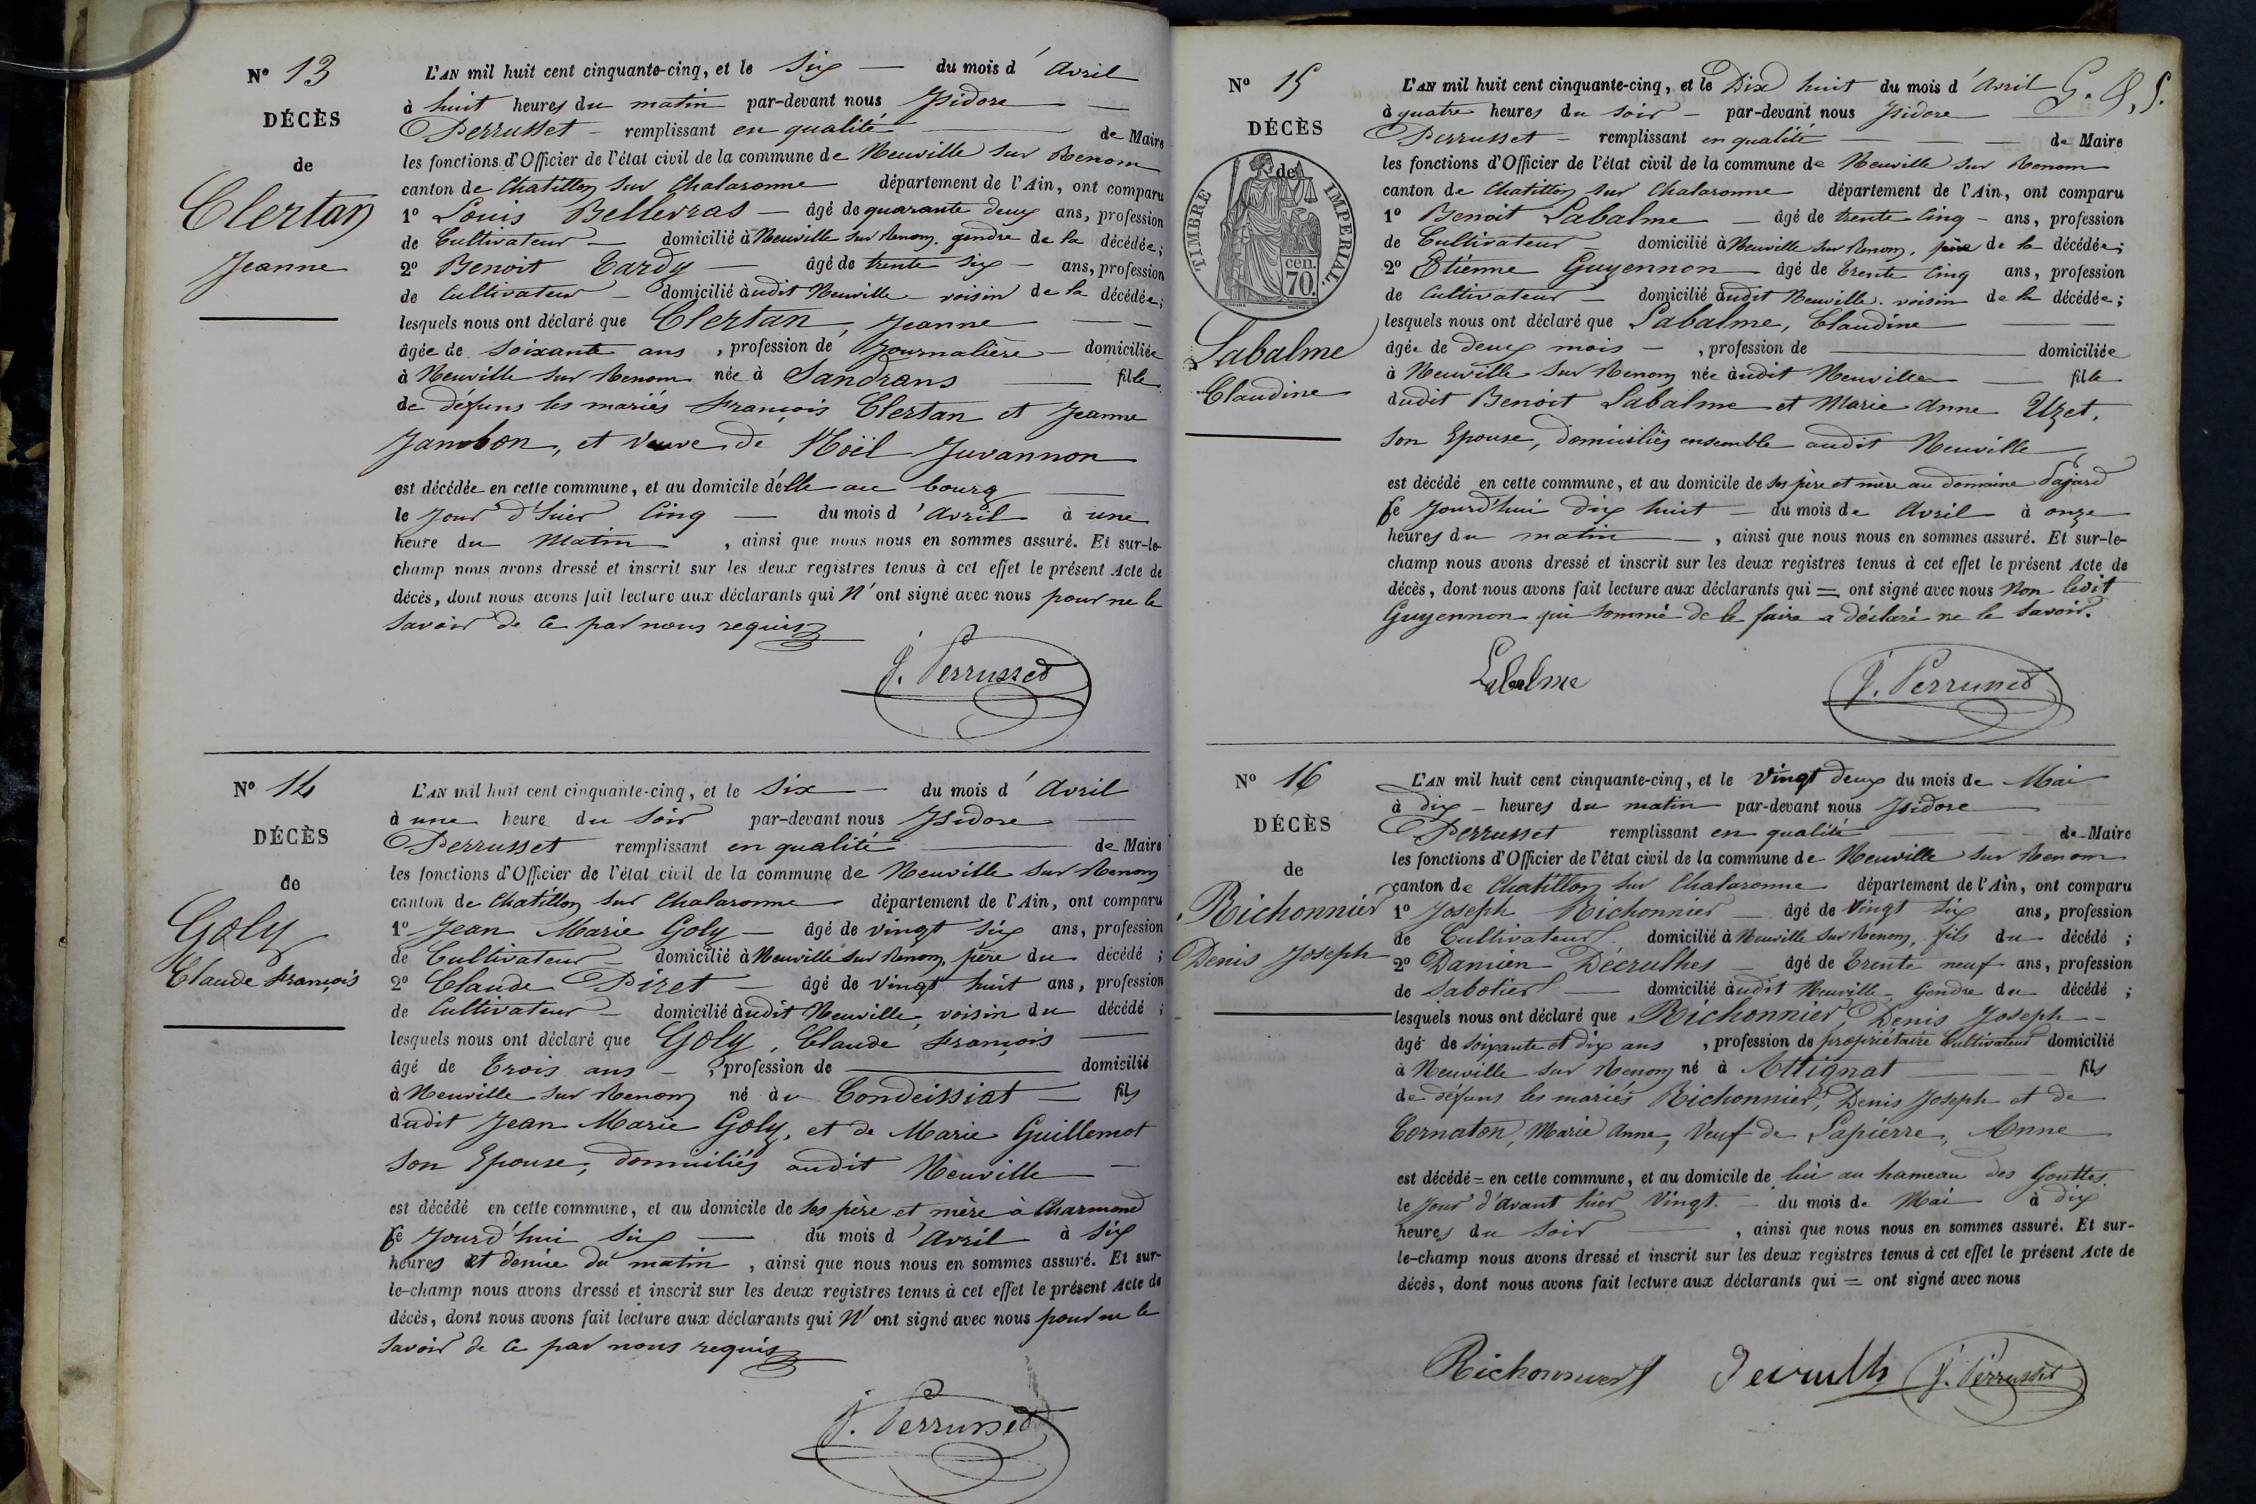 Nº 13
DÉCÈS
de
Clertan
Jeanne
L'AN mil huit cent cinquante-cinq, et le Six du mois d'Avril
à huit heures du matin par-devant nous Isidore
Perrusset remplissant en qualité de Maire
les fonctions d'Officier de l'état civil de la commune de Neuville sur Renom
canton de Chatillon sur Chalaronne département de l'Ain, ont comparu
1º Louis Bellevras âgé de quarante deux ans, profession
de Cultivateur domicilié à Neuville sur Renom, gendre de la décédée;
2º Benoit Tardy âgé de trente six ans, profession
de Cultivateur domicilié àudit Neuville voisin de la décédée;
lesquels nous ont déclaré que Clertan, Jeanne
âgée de soixante ans, profession de Journalière domiciliée
à Neuville sur Renom née à Sandrans fille
de défuns les mariés François Clertan et Jeanne
Jambon, et Veuve de Noël Juvannon
est décédée en cette commune, et au domicile d'elle au bourg
le Jour d'hier Cinq du mois d'Avril à une
heure du Matin, ainsi que nous nous en sommes assuré. Et sur-le-
champ nous avons dressé et inscrit sur les deux registres tenus à cet effet le présent Acte de
décès, dont nous avons fait lecture aux déclarants qui N'ont signé avec nous pour ne le
Savoir de Ce par nous requis
J. Perrusset
Nº 14
DÉCÈS
de
Goly
Claude François
L'AN mil huit cent cinquante-cinq, et le Six du mois d'Avril
à une heure du Soir par-devant nous Isidore
Perrusset remplissant en qualité de Maire
les fonctions d'Officier de l'état civil de la commune de Neuville sur Renom
canton de Chatillon sur Chalaronne département de l'Ain, ont comparu
1º Jean Marie Goly âgé de vingt Six ans, profession
de Cultivateur domicilié à Neuville sur Renom, père du décédé;
2º Claude Piret âgé de vingt huit ans, profession
de Cultivateur domicilié àudit Neuville, voisin du décédé;
lesquels nous ont déclaré que Goly, Claude François
âgé de Trois ans, profession de domicilié
à Neuville sur Renom né à Condeissiat fils
dudit Jean Marie Goly, et de Marie Guillemot
Son Epouse, domiciliés audit Neuville
est décédé en cette commune, et au domicile de ses père et mère à Charmond
Ce Jourd'hui Six du mois d'Avril à Six
heures et demie du matin, ainsi que nous nous en sommes assuré. Et sur-
le-champ nous avons dressé et inscrit sur les deux registres tenus à cet effet le présent Acte de
décès, dont nous avons fait lecture aux déclarants qui N'ont signé avec nous pour ne le
Savoir de Ce par nous requis
J. Perrusset
Nº 15
DÉCÈS
de
TIMBRE IMPERIAL.
70 cen.
Labalme
Claudine
L'AN mil huit cent cinquante-cinq, et le Dix huit du mois d'Avril
à quatre heures du Soir par-devant nous Isidore
Perrusset remplissant en qualité de Maire
les fonctions d'Officier de l'état civil de la commune de Neuville sur Renom
canton de Chatillon sur Chalaronne département de l'Ain, ont comparu
1º Benoit Labalme âgé de trente Cinq ans, profession
de Cultivateur domicilié à Neuville sur Renom, père de la décédée;
2º Etienne Guyennon âgé de trente Cinq ans, profession
de Cultivateur domicilié audit Neuville voisin de la décédée;
lesquels nous ont déclaré que Labalme, Claudine
âgée de deux mois, profession de domiciliée
à Neuville sur Renom née àudit Neuville fille
dudit Benoit Labalme et Marie Anne Uzet,
Son Epouse, domiciliés ensemble audit Neuville
est décédé en cette commune, et au domicile de ses père et mère au domaine Pajard
Ce Jourd'hui dix huit du mois de Avril à onze
heures du matin, ainsi que nous nous en sommes assuré. Et sur-le-
champ nous avons dressé et inscrit sur les deux registres tenus à cet effet le présent Acte de
décès, dont nous avons fait lecture aux déclarants qui = ont signé avec nous Non ledit
Guyennon qui sommé de le faire a déclaré ne le Savoir.
Labalme J. Perrusset
Nº 16
DÉCÈS
de
Richonnier
Denis Joseph
L'AN mil huit cent cinquante-cinq, et le Vingt deux du mois de Mai
à dix heures du matin par-devant nous Isidore
Perrusset remplissant en qualité de Maire
les fonctions d'Officier de l'état civil de la commune de Neuville sur Renom
canton de Chatillon sur Chalaronne département de l'Ain, ont comparu
1º Joseph Richonnier âgé de Vingt Six ans, profession
de Cultivateur domicilié à Neuville sur Renom, fils du décédé;
2º Damien Decrulhes âgé de Trente neuf ans, profession
de Sabotier domicilié àudit Neuville Gendre du décédé;
lesquels nous ont déclaré que Richonnier, Denis Joseph
âgé de Soixante et dix ans, profession de propriétaire Cultivateur domicilié
à Neuville sur Renom né à Attignat fils
de défuns les mariés Richonnier, Denis Joseph et de
Cornaton, Marie Anne, Veuf de Lapierre, Anne
est décédé = en cette commune, et au domicile de lui au hameau des Gouttes
le Jour d'avant hier Vingt du mois de Mai à dix
heures du Soir, ainsi que nous nous en sommes assuré. Et sur-
le-champ nous avons dressé et inscrit sur les deux registres tenus à cet effet le présent Acte de
décès, dont nous avons fait lecture aux déclarants qui = ont signé avec nous
Richonnier J. Perrusset